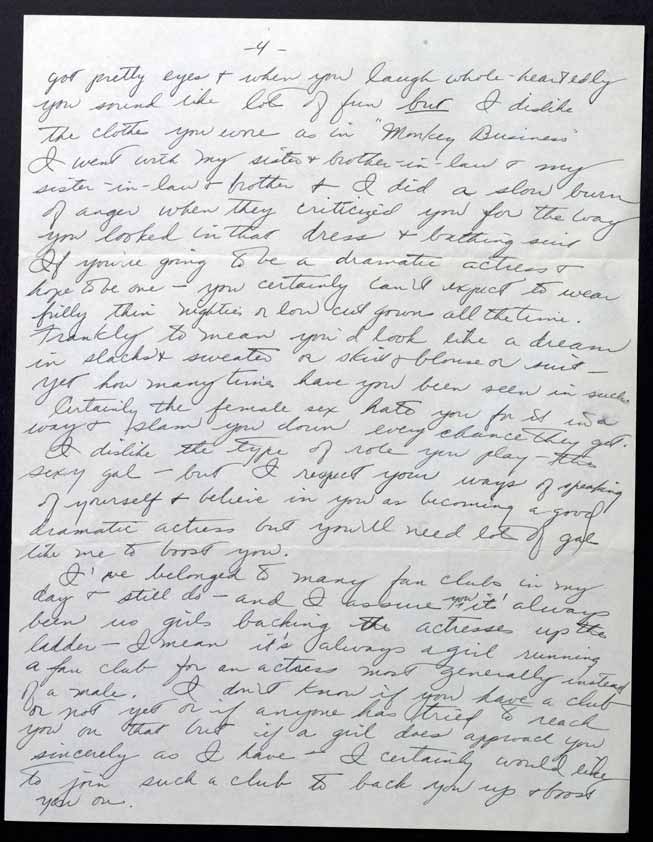 -4-
got pretty eyes & when you laugh whole-heartedly
you sound like lots of fun but I dislike
the clothes you wore as in "Monkey Business"
I went with my sister & brother-in-law & my
sister-in-law & brother & I did a slow burn
of anger when they criticized you for the way
you looked in that dress & bathing suit
If you're going to be a dramatic actress &
hope to be one – you certainly can't expect to wear
frilly thin nighties or low cut gowns all the time.
Frankly to mean you'd look like a dream
in slacks & sweater or skirt & blouse or suit –
yet how many times have you been seen in such
Certainly the female sex hate you for it in a
way & slam you down every chance they get.
I dislike the type of role you play – the
sexy gal – but I respect your ways of speaking
of yourself & believe in you as becoming a good
dramatic actress but you'll need lot of gal
like me to boost you.
I've belonged to many fan clubs in my
day & still do – and I assure you it's always
been us girls backing the actresses up the
ladder – I mean it's always a girl running
a fan club for an actress most generally instead
of a male. I don't know if you have a club
or not yet or if anyone has tried to reach
you on that but if a girl does approach you
sincerely as I have – I certainly would like
to join such a club to back you up & boost
you on.